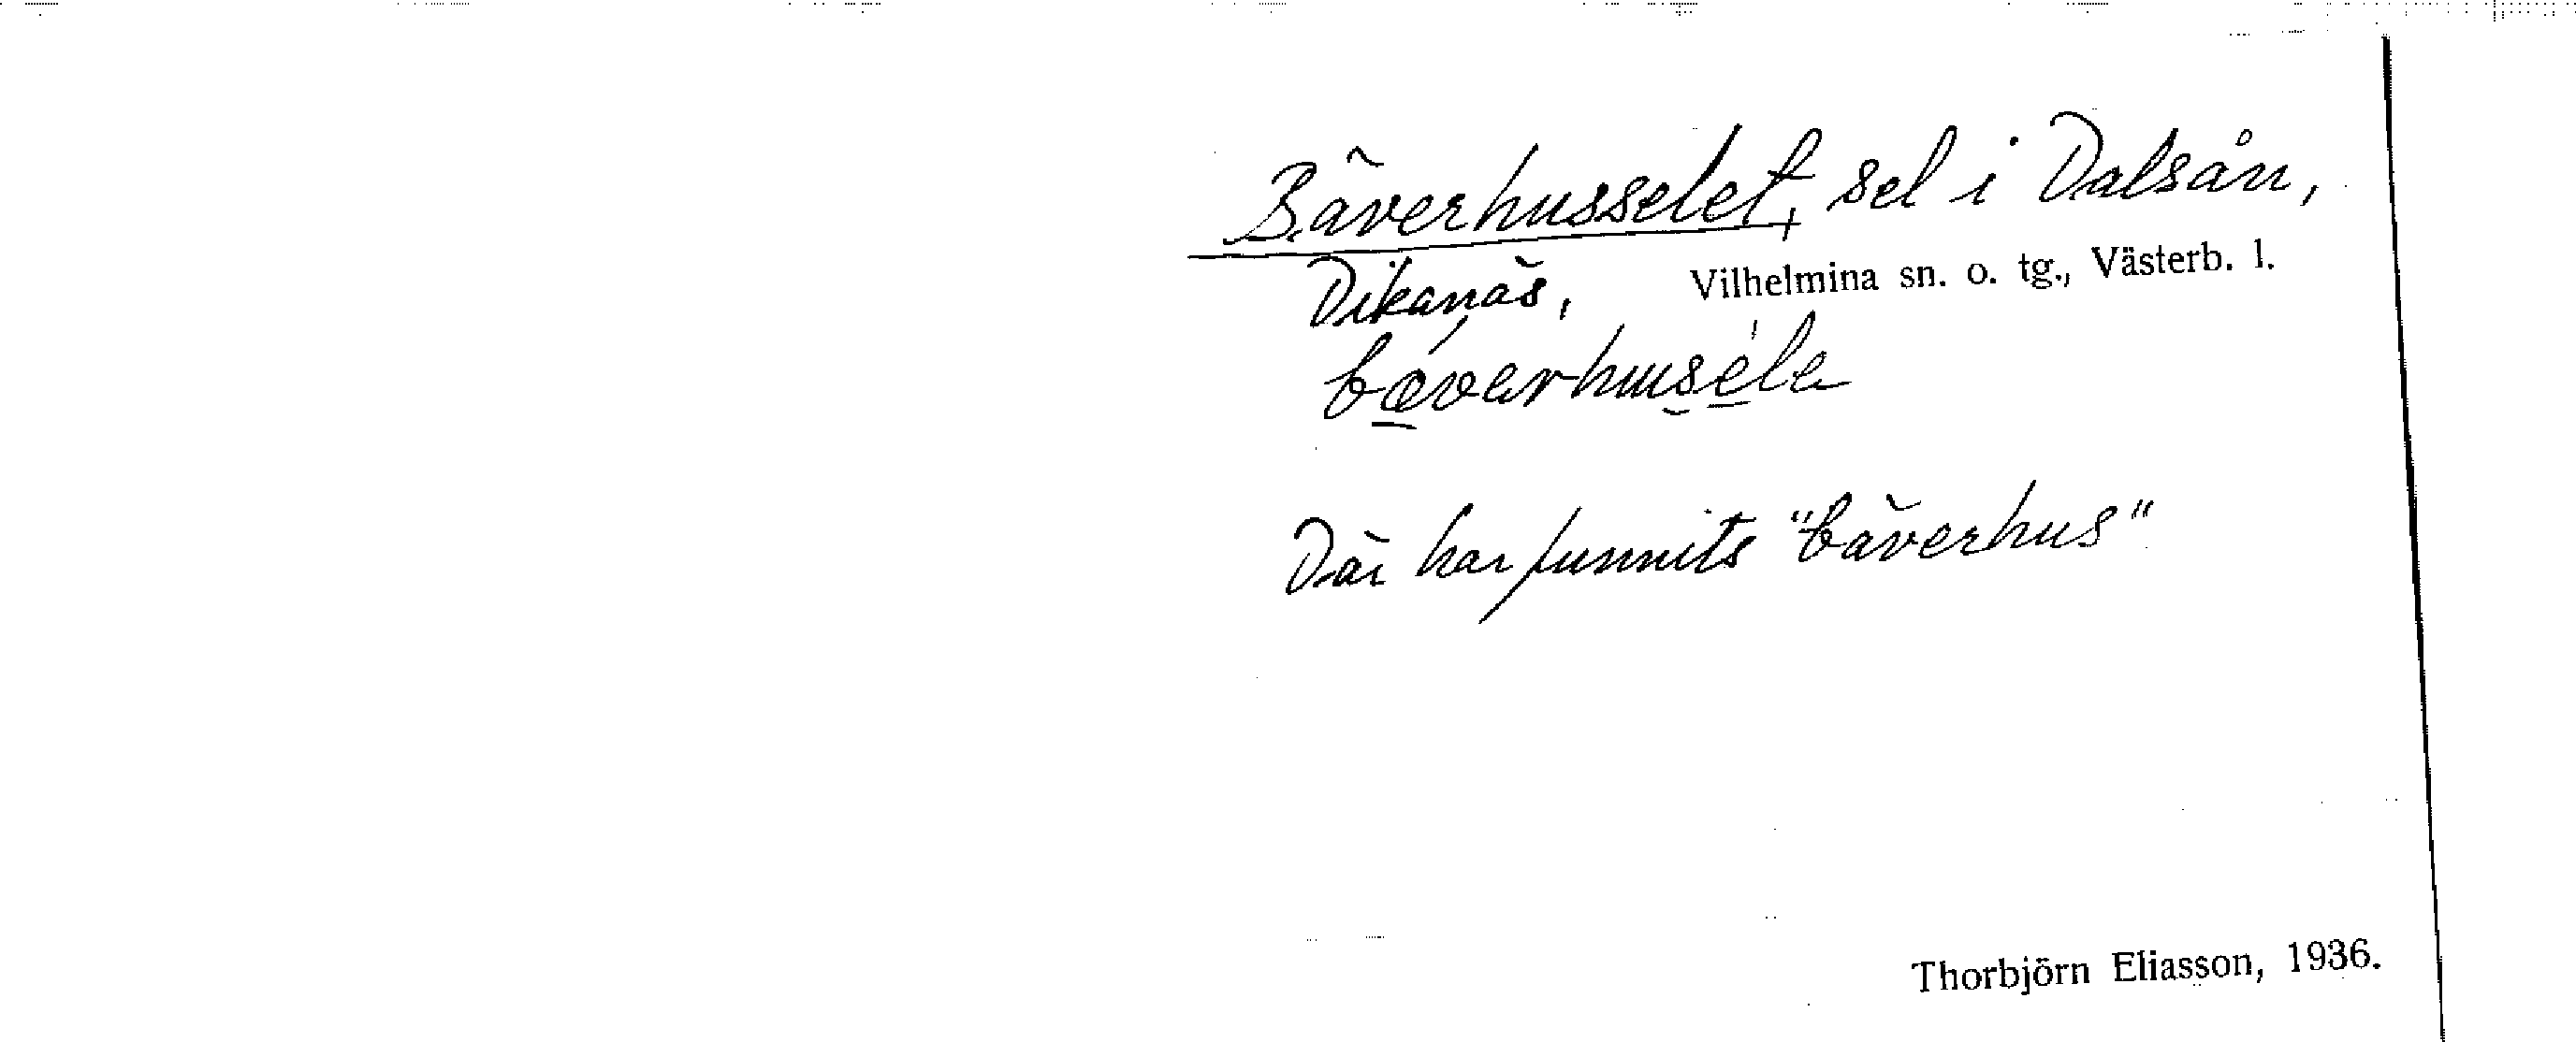 Bäverhusselet, sel i Dalsån,
Dikanäs, Vilhelmina sn. o. tg., Västerb. l.
bæverhusele
Där har funnits "bäverhus"
Thorbjörn Eliasson, 1936.